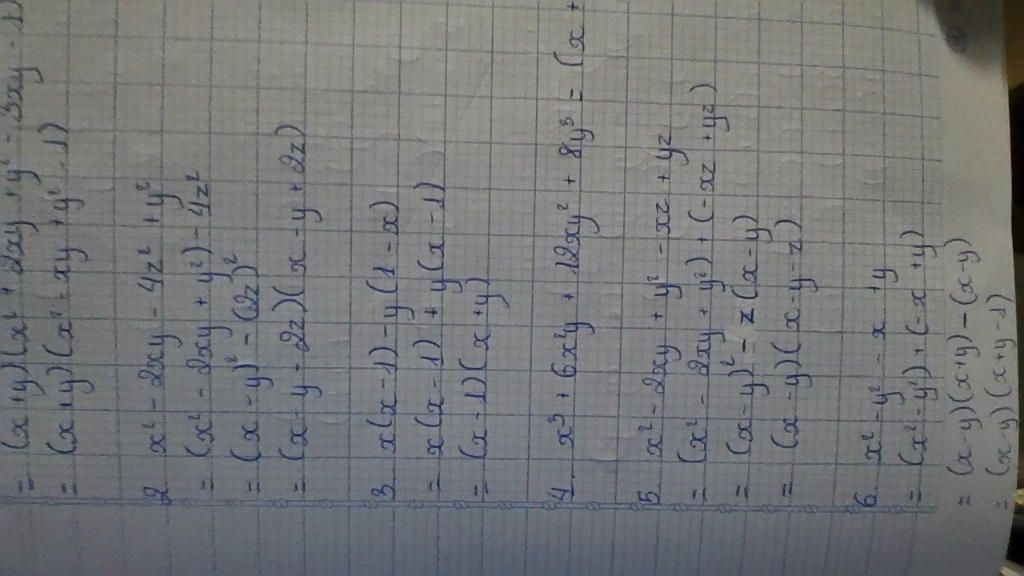 = (x+y)(x² + 2xy + y² - 3xy - 1)
= (x+y)(x² - xy + y² - 1)
2 x² - 2xy - 4z² + y²
= (x² - 2xy + y²) - 4z²
= (x - y)² - (2z)²
= (x - y - 2z)(x - y + 2z)
3 x(x - 1) - y(1 - x)
= x(x - 1) + y(x - 1)
= (x - 1)(x + y)
4 x³ + 6x²y + 12xy² + 8y³ = (x +
5 x² - 2xy + y² - xz + yz
= (x² - 2xy + y²) + (-xz + yz)
= (x - y)² - z(x - y)
= (x - y)(x - y - z)
6 x² - y² - x + y
= (x² - y²) + (-x + y)
= (x - y)(x + y) - (x - y)
= (x - y)(x + y - 1)